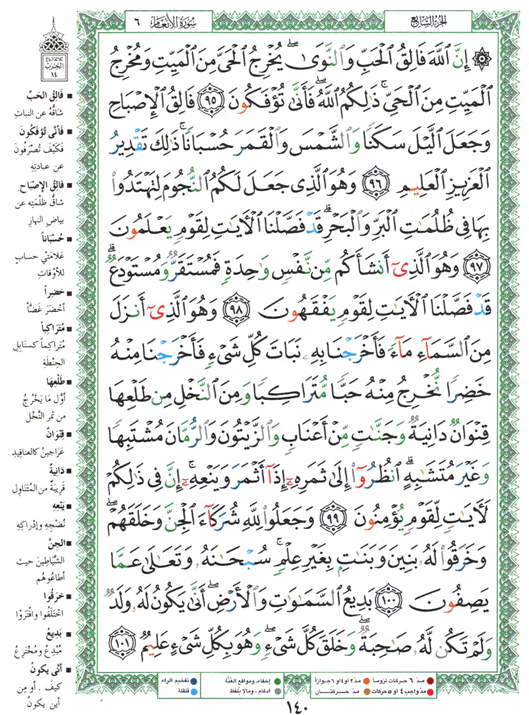 الجزء السابع
سورة الأنعام ٦
۞ إِنَّ اللَّهَ فَالِقُ الْحَبِّ وَالنَّوَىٰ ۖ يُخْرِجُ الْحَيَّ مِنَ الْمَيِّتِ وَمُخْرِجُ
الْمَيِّتِ مِنَ الْحَيِّ ۚ ذَٰلِكُمُ اللَّهُ ۖ فَأَنَّىٰ تُؤْفَكُونَ ٩٥ فَالِقُ الْإِصْبَاحِ
وَجَعَلَ اللَّيْلَ سَكَنًا وَالشَّمْسَ وَالْقَمَرَ حُسْبَانًا ۚ ذَٰلِكَ تَقْدِيرُ
الْعَزِيزِ الْعَلِيمِ ٩٦ وَهُوَ الَّذِي جَعَلَ لَكُمُ النُّجُومَ لِتَهْتَدُوا
بِهَا فِي ظُلُمَاتِ الْبَرِّ وَالْبَحْرِ ۗ قَدْ فَصَّلْنَا الْآيَاتِ لِقَوْمٍ يَعْلَمُونَ
٩٧ وَهُوَ الَّذِي أَنشَأَكُم مِّن نَّفْسٍ وَاحِدَةٍ فَمُسْتَقَرٌّ وَمُسْتَوْدَعٌ ۗ
قَدْ فَصَّلْنَا الْآيَاتِ لِقَوْمٍ يَفْقَهُونَ ٩٨ وَهُوَ الَّذِي أَنزَلَ
مِنَ السَّمَاءِ مَاءً فَأَخْرَجْنَا بِهِ نَبَاتَ كُلِّ شَيْءٍ فَأَخْرَجْنَا مِنْهُ
خَضِرًا نُّخْرِجُ مِنْهُ حَبًّا مُّتَرَاكِبًا وَمِنَ النَّخْلِ مِن طَلْعِهَا
قِنْوَانٌ دَانِيَةٌ وَجَنَّاتٍ مِّنْ أَعْنَابٍ وَالزَّيْتُونَ وَالرُّمَّانَ مُشْتَبِهًا
وَغَيْرَ مُتَشَابِهٍ ۗ انظُرُوا إِلَىٰ ثَمَرِهِ إِذَا أَثْمَرَ وَيَنْعِهِ ۚ إِنَّ فِي ذَٰلِكُمْ
لَآيَاتٍ لِّقَوْمٍ يُؤْمِنُونَ ٩٩ وَجَعَلُوا لِلَّهِ شُرَكَاءَ الْجِنَّ وَخَلَقَهُمْ ۖ
وَخَرَقُوا لَهُ بَنِينَ وَبَنَاتٍ بِغَيْرِ عِلْمٍ ۚ سُبْحَانَهُ وَتَعَالَىٰ عَمَّا
يَصِفُونَ ١٠٠ بَدِيعُ السَّمَاوَاتِ وَالْأَرْضِ ۖ أَنَّىٰ يَكُونُ لَهُ وَلَدٌ
وَلَمْ تَكُن لَّهُ صَاحِبَةٌ ۖ وَخَلَقَ كُلَّ شَيْءٍ ۖ وَهُوَ بِكُلِّ شَيْءٍ عَلِيمٌ ١٠١
الحزب
١٤
فَالِقُ الحَبِّ
شاقُّه عن النبات
فَأَنَّى تُؤْفَكُونَ
فَكَيْفَ تُصْرَفُونَ
عن عبادته
فَالِقُ الإِصْبَاحِ
شاقّ ظلمته عن
بياض النهار
حُسْبَاناً
عَلامَتَيْ حساب
للأوقات
خَضِراً
أخضر غضّاً
مُتَرَاكِباً
متراكماً كسنابل
الحنطة
طَلْعِهَا
أوّل ما يخرج
من ثمر النخل
قِنْوَانٌ
عراجين كالعناقيد
دَانِيَةٌ
قريبة من المتناول
يَنْعِهِ
نُضجِه وإدراكه
الجِنَّ
الشياطين حيث
أطاعوهم
خَرَقُوا
اختلقوا وافتروا
بَدِيعُ
مُبْدِع ومخترع
أَنَّى يَكُونُ
كيف، أو من
أين يكون
مدّ ٦ حركات لزوماً
مدّ ٢ أو ٤ أو ٦ جوازاً
إخفاء، ومواقع الغُنَّة
تفخيم الراء
مدّ واجب ٤ أو ٥ حركات
مدّ حركتان
إدغام، وما لا يُلفظ
قلقلة
١٤٠